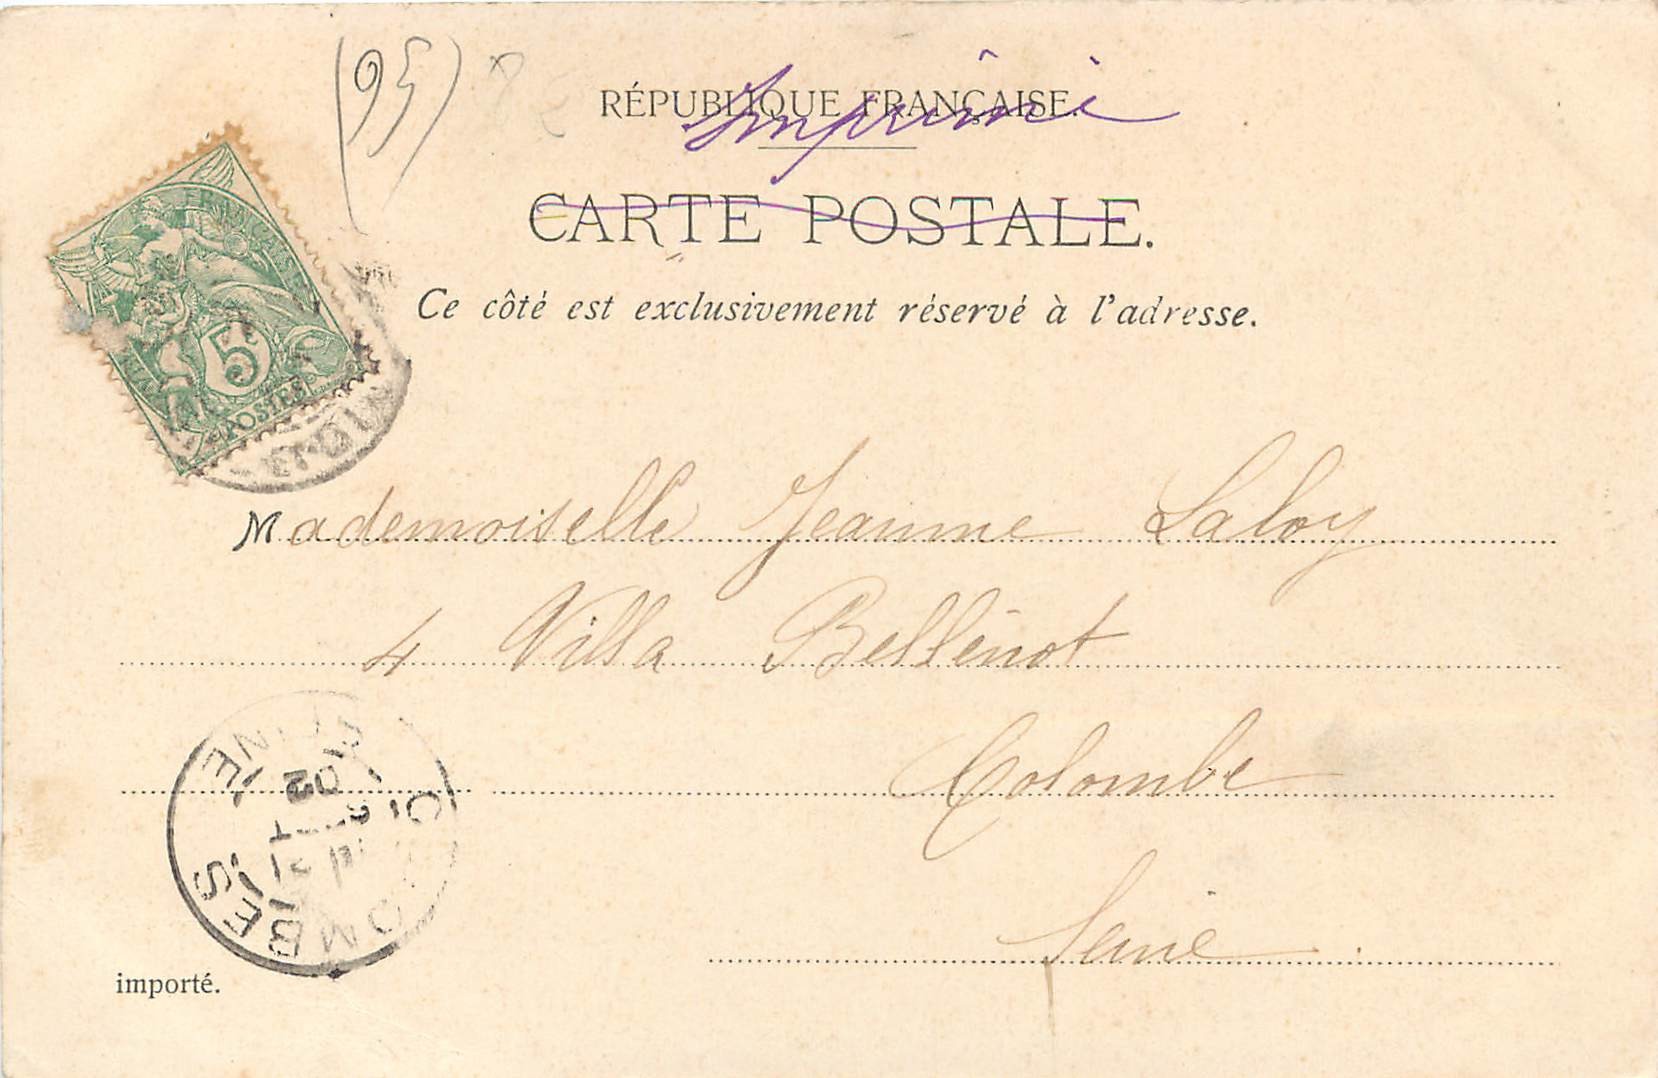 (95)
RÉPUBLIQUE FRANÇAISE.
Imprimé
CARTE POSTALE.
Ce côté est exclusivement réservé à l'adresse.
5
POSTES
Mademoiselle Jeanne Laloy
4 Villa Bellénot
Colombe
Seine
COLOMBES
SEINE
02
importé.